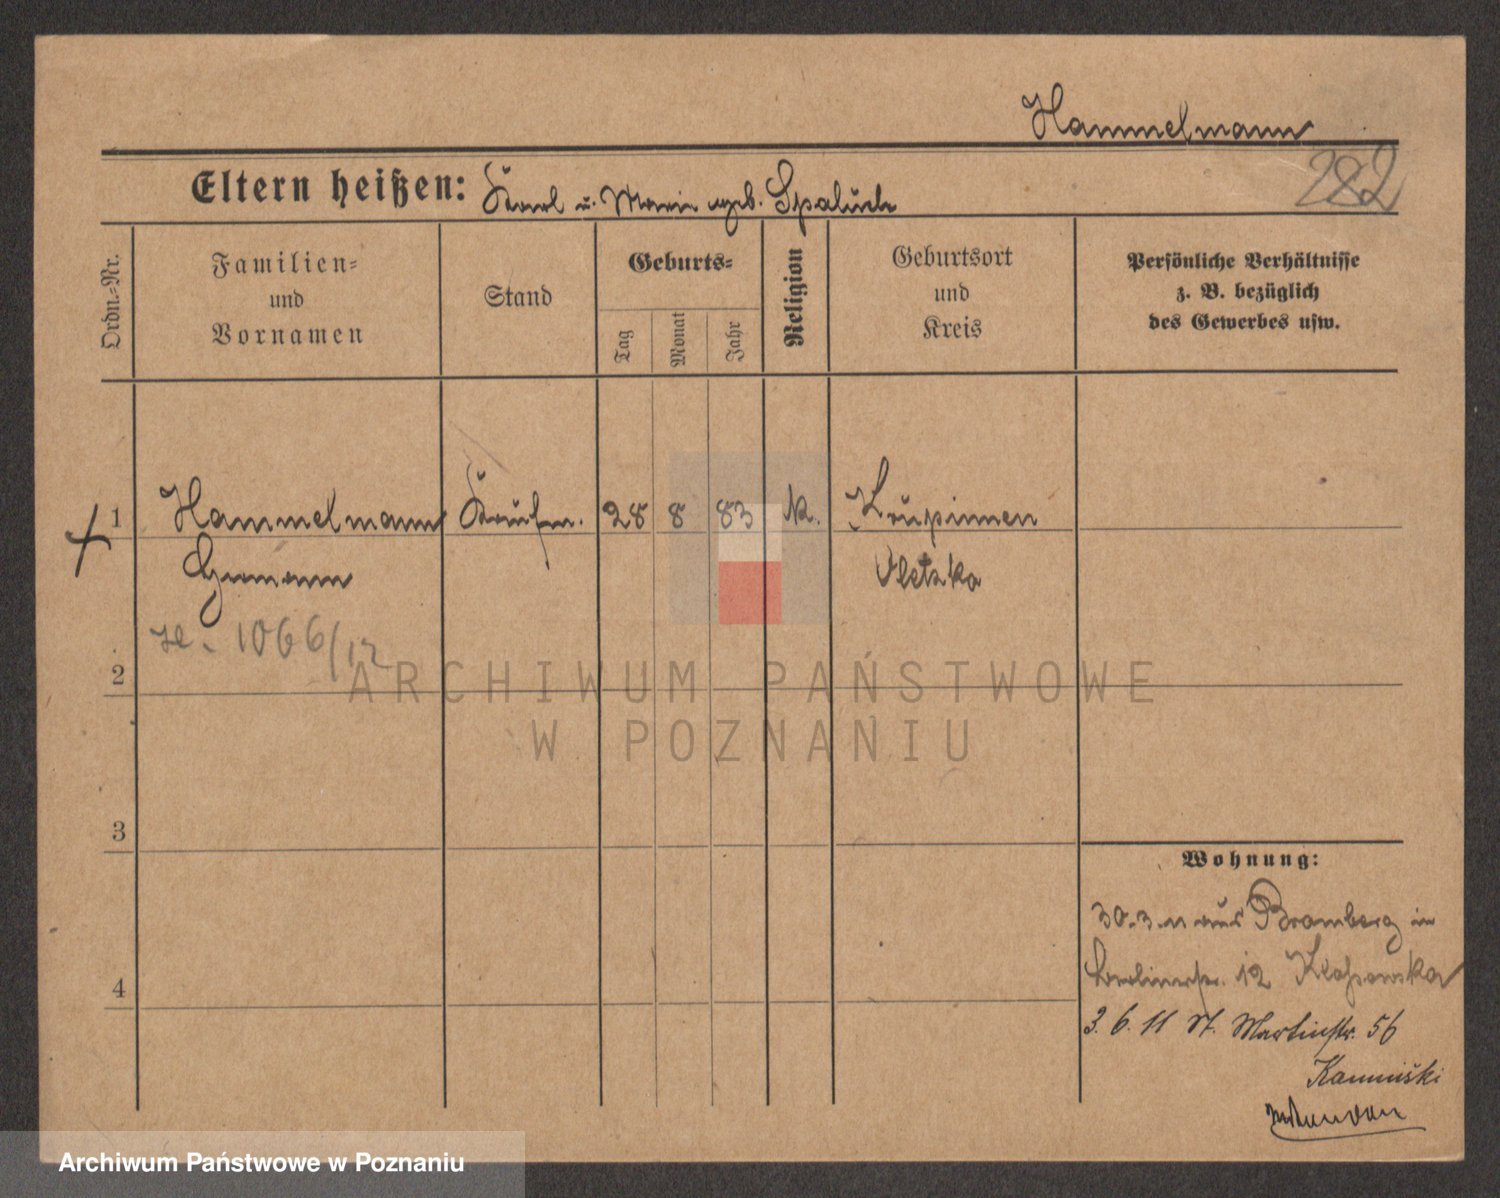 Hammelmann
282
Eltern heißen: Karl u. Marie geb. Spaluch
Ordn.-Nr.
Familien-
und
Vornamen
Stand
Geburts-
Tag
Monat
Jahr
Religion
Geburtsort
und
Kreis
Persönliche Verhältnisse
z. B. bezüglich
des Gewerbes usw.
1 Hammelmann Kaufm. 28 8 83 k. Krupinnen
Hermann Oletzko
1066/12
2
3
4
Wohnung:
30.3.11 aus Bromberg in
Berlinerstr. 12
3. 6. 11 St. Martinstr. 56
Kaminski
ARCHIWUM PAŃSTWOWE
W POZNANIU
Archiwum Państwowe w Poznaniu